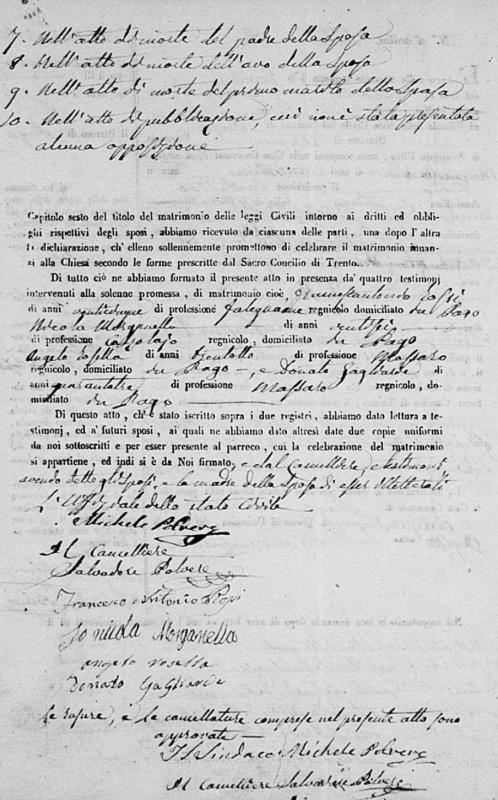 7. Nell'atto di morte del padre della Sposa
8. Nell'atto di morte dell'avo della Sposa
9. Nell'atto di morte del primo marito della Sposa
10. Nell'atto di pubblicazione, cui non è stata presentata
alcuna opposizione
Capitolo sesto del titolo del matrimonio delle leggi Civili intorno ai dritti ed obbli-
ghi rispettivi degli sposi, abbiamo ricevuto da ciascuna delle parti, una dopo l'altra
la dichiarazione, ch'elleno sollennemente promettono di celebrare il matrimonio innan-
zi alla Chiesa secondo le forme prescritte dal Sacro Concilio di Trento.
Di tutto ciò ne abbiamo formato il presente atto in presenza da' quattro testimonj
intervenuti alla solenne promessa, di matrimonio, cioè,
di anni venticinque di professione regnicolo domiciliato in Pago
Nicola Morganella di anni
di professione regnicolo, domiciliato in Pago
Angelo Rosella di anni trentotto di professione Massaro
regnicolo, domiciliato in Pago, e Donato Gagliarde di
anni quarantatre di professione Massaro regnicolo, do-
miciliato in Pago
Di questo atto, ch'è stato iscritto sopra i due registri, abbiamo dato lettura a te-
stimonj, ed a' futuri sposi, ai quali ne abbiamo altresì date due copie uniformi
da noi sottoscritti e per esser presente al parroco, cui la celebrazione del matrimonio
si appartiene, ed indi si è da Noi firmato, e dal Cancelliere, e testimonj
avendo detto gli Sposi, e la madre della Sposa di esser illetterati
L'Uffiziale dello stato Civile
Michele Polvere
Il Cancelliere
Salvadore Polvere
Francesco Antonio
Io nicola Morganella
angelo rosella
Donato Gagliarde
Le rasure, e le cancellature comprese nel presente atto sono
approvate
Il Sindaco Michele Polvere
Il Cancelliere Salvadore Polvere